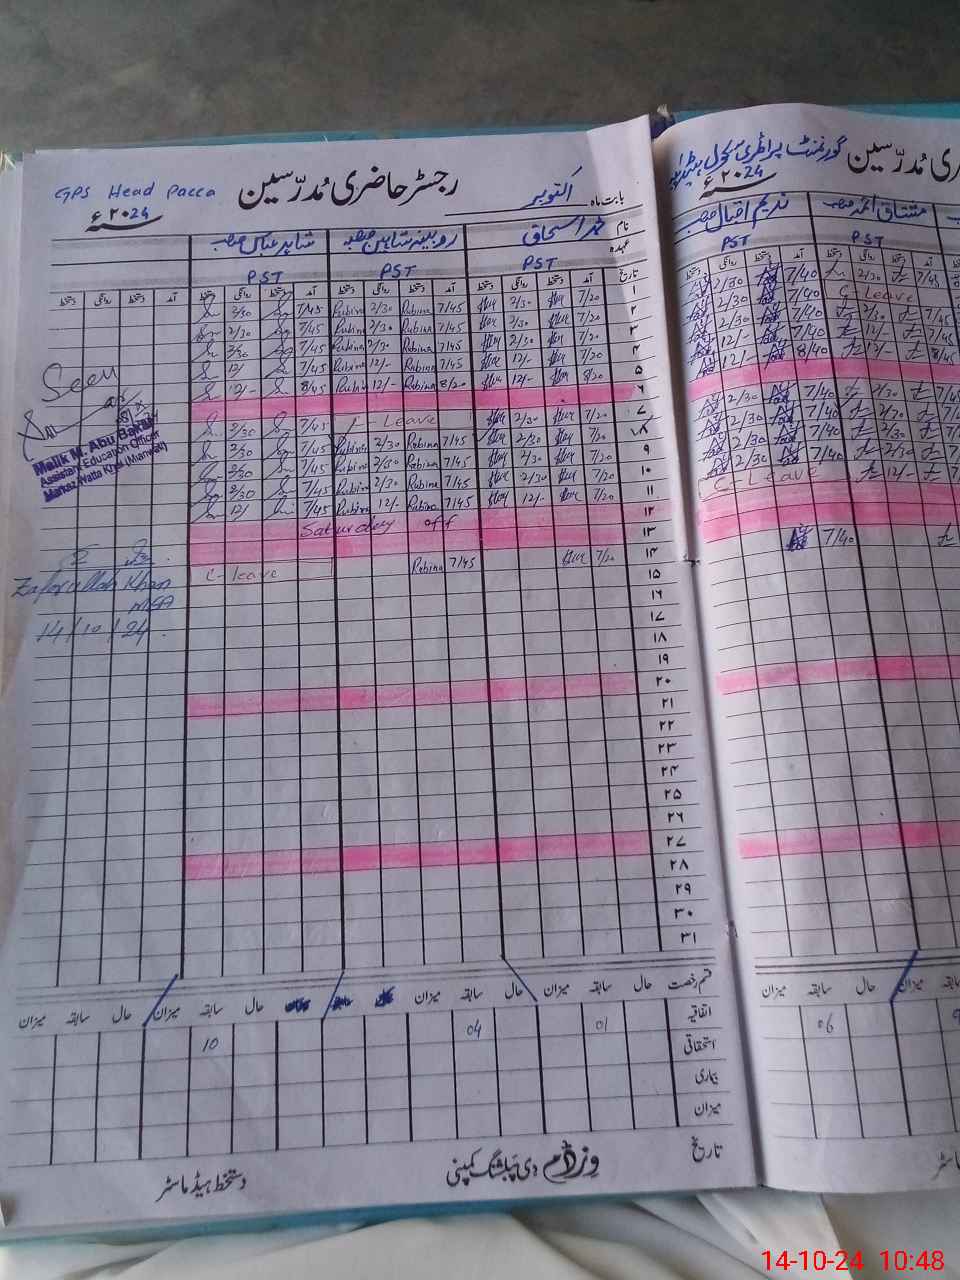 GPS Head Pacca
رجسٹر حاضری مُدرّسین
بابت ماہ اکتوبر
سنہ ۲۰24ء
نام محمد اسحاق روبینہ شاہین صاحبہ شاہد عباس صاحب
عہدہ PST PST PST
تاریخ آمد دستخط روانگی دستخط آمد دستخط روانگی دستخط آمد دستخط روانگی دستخط آمد دستخط روانگی دستخط
۱ 7/20 2/30 7/45 Rubina 2/30 Rubina 7/45 2/30
۲ 7/20 2/30 7/45 Rubina 2/30 Rubina 7/45 2/30
۳ 7/20 2/30 7/45 Rubina 2/30 Rubina 7/45 2/30
۴ 7/20 12/- 7/45 Rubina 12/- Rubina 7/45 12/
۵ 8/20 12/- 8/20 Rubina 12/- Rubina 8/45 12/-
۶
۷ 7/20 2/30 C-Leave 7/45 2/30
۸ 7/20 2/30 7/45 Rubina 2/30 Rubina 7/45 2/30
۹ 7/20 2/30 7/45 Rubina 2/30 Rubina 7/45 2/30
۱۰ 7/20 2/30 7/45 Rubina 2/30 Rubina 7/45 2/30
۱۱ 7/20 12/- 7/45 Rubina 12/- Rubina 7/45 12/
۱۲ Saturday off
۱۳
۱۴ 7/20 7/45 Rubina C-leave
۱۵
۱۶
۱۷
۱۸
۱۹
۲۰
۲۱
۲۲
۲۳
۲۴
۲۵
۲۶
۲۷
۲۸
۲۹
۳۰
۳۱
Seen
Malik M. Abu Bakar
Assistant Education Officer
Markaz Watta Khel (Mianwali)
Zafarullah Khan
MEA
14/10/24
قسم رخصت حال سابقہ میزان حال سابقہ میزان حال سابقہ میزان حال سابقہ میزان
اتفاقیہ 01 04 10
استحقاقی
بیماری
میزان
تاریخ
وزڈم دی پبلشنگ کمپنی
دستخط ہیڈ ماسٹر
گورنمنٹ پرائمری سکول ہیڈ پکہ
سنہ ۲۰24ء
مشتاق احمد صاحب ندیم اقبال صاحب
PST PST
7/45 2/30 7/40 2/30
C-Leave 7/40 2/30
7/45 2/30 7/40 2/30
7/45 12/- 7/40 12/-
8/45 12/- 8/40 12/-
7/45 2/30 7/40 2/30
7/45 2/30 7/40 2/30
2/30 7/40 2/30
2/30 7/40 2/30
12/- C-Leave
7/40
حال سابقہ میزان
06
14-10-24 10:48